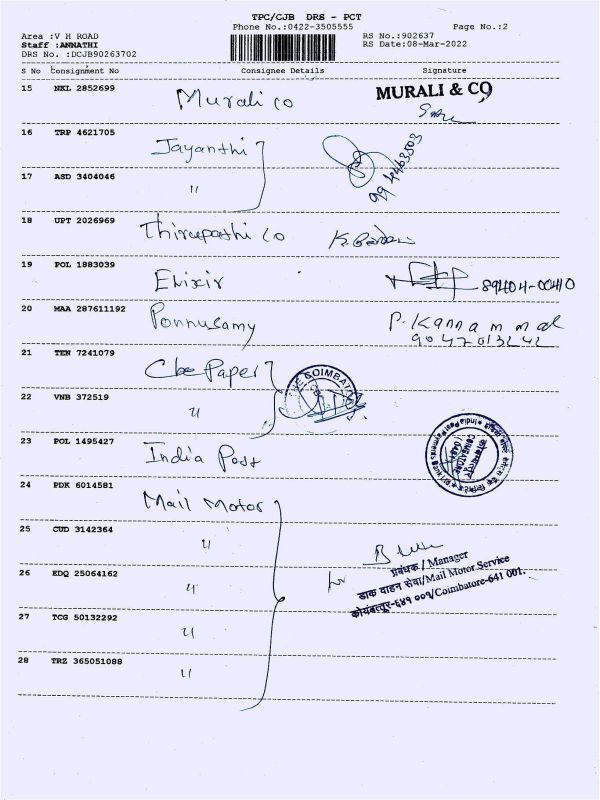 TPC/CJB DRS - PCT
Phone No.:0422-3505555 Page No.:2
Area :V H ROAD RS No.:902637
Staff :ANNATHI RS Date:08-Mar-2022
DRS No. :DCJB90263702
S No Consignment No Consignee Details Signature
15 NKL 2852699 Murali co MURALI & CO
16 TRP 4621705 Jayanthi
17 ASD 3404046 "
18 UPT 2026969 Thirupathi co
19 POL 1883039 Elixir 89404-00410
20 MAA 287611192 Ponnusamy P. Kannammal
21 TEN 7241079 Cbe Paper THE COIMBATORE
22 VNB 372519 "
23 POL 1495427 India Post
24 PDK 6014581 Mail Motor
25 CUD 3142364 "
26 EDQ 25064162 "
प्रबंधक / Manager
डाक वाहन सेवा/Mail Motor Service
कोयंबत्तूर-६४१ ००१/Coimbatore-641 001.
27 TCG 50132292 "
28 TRZ 365051088 "